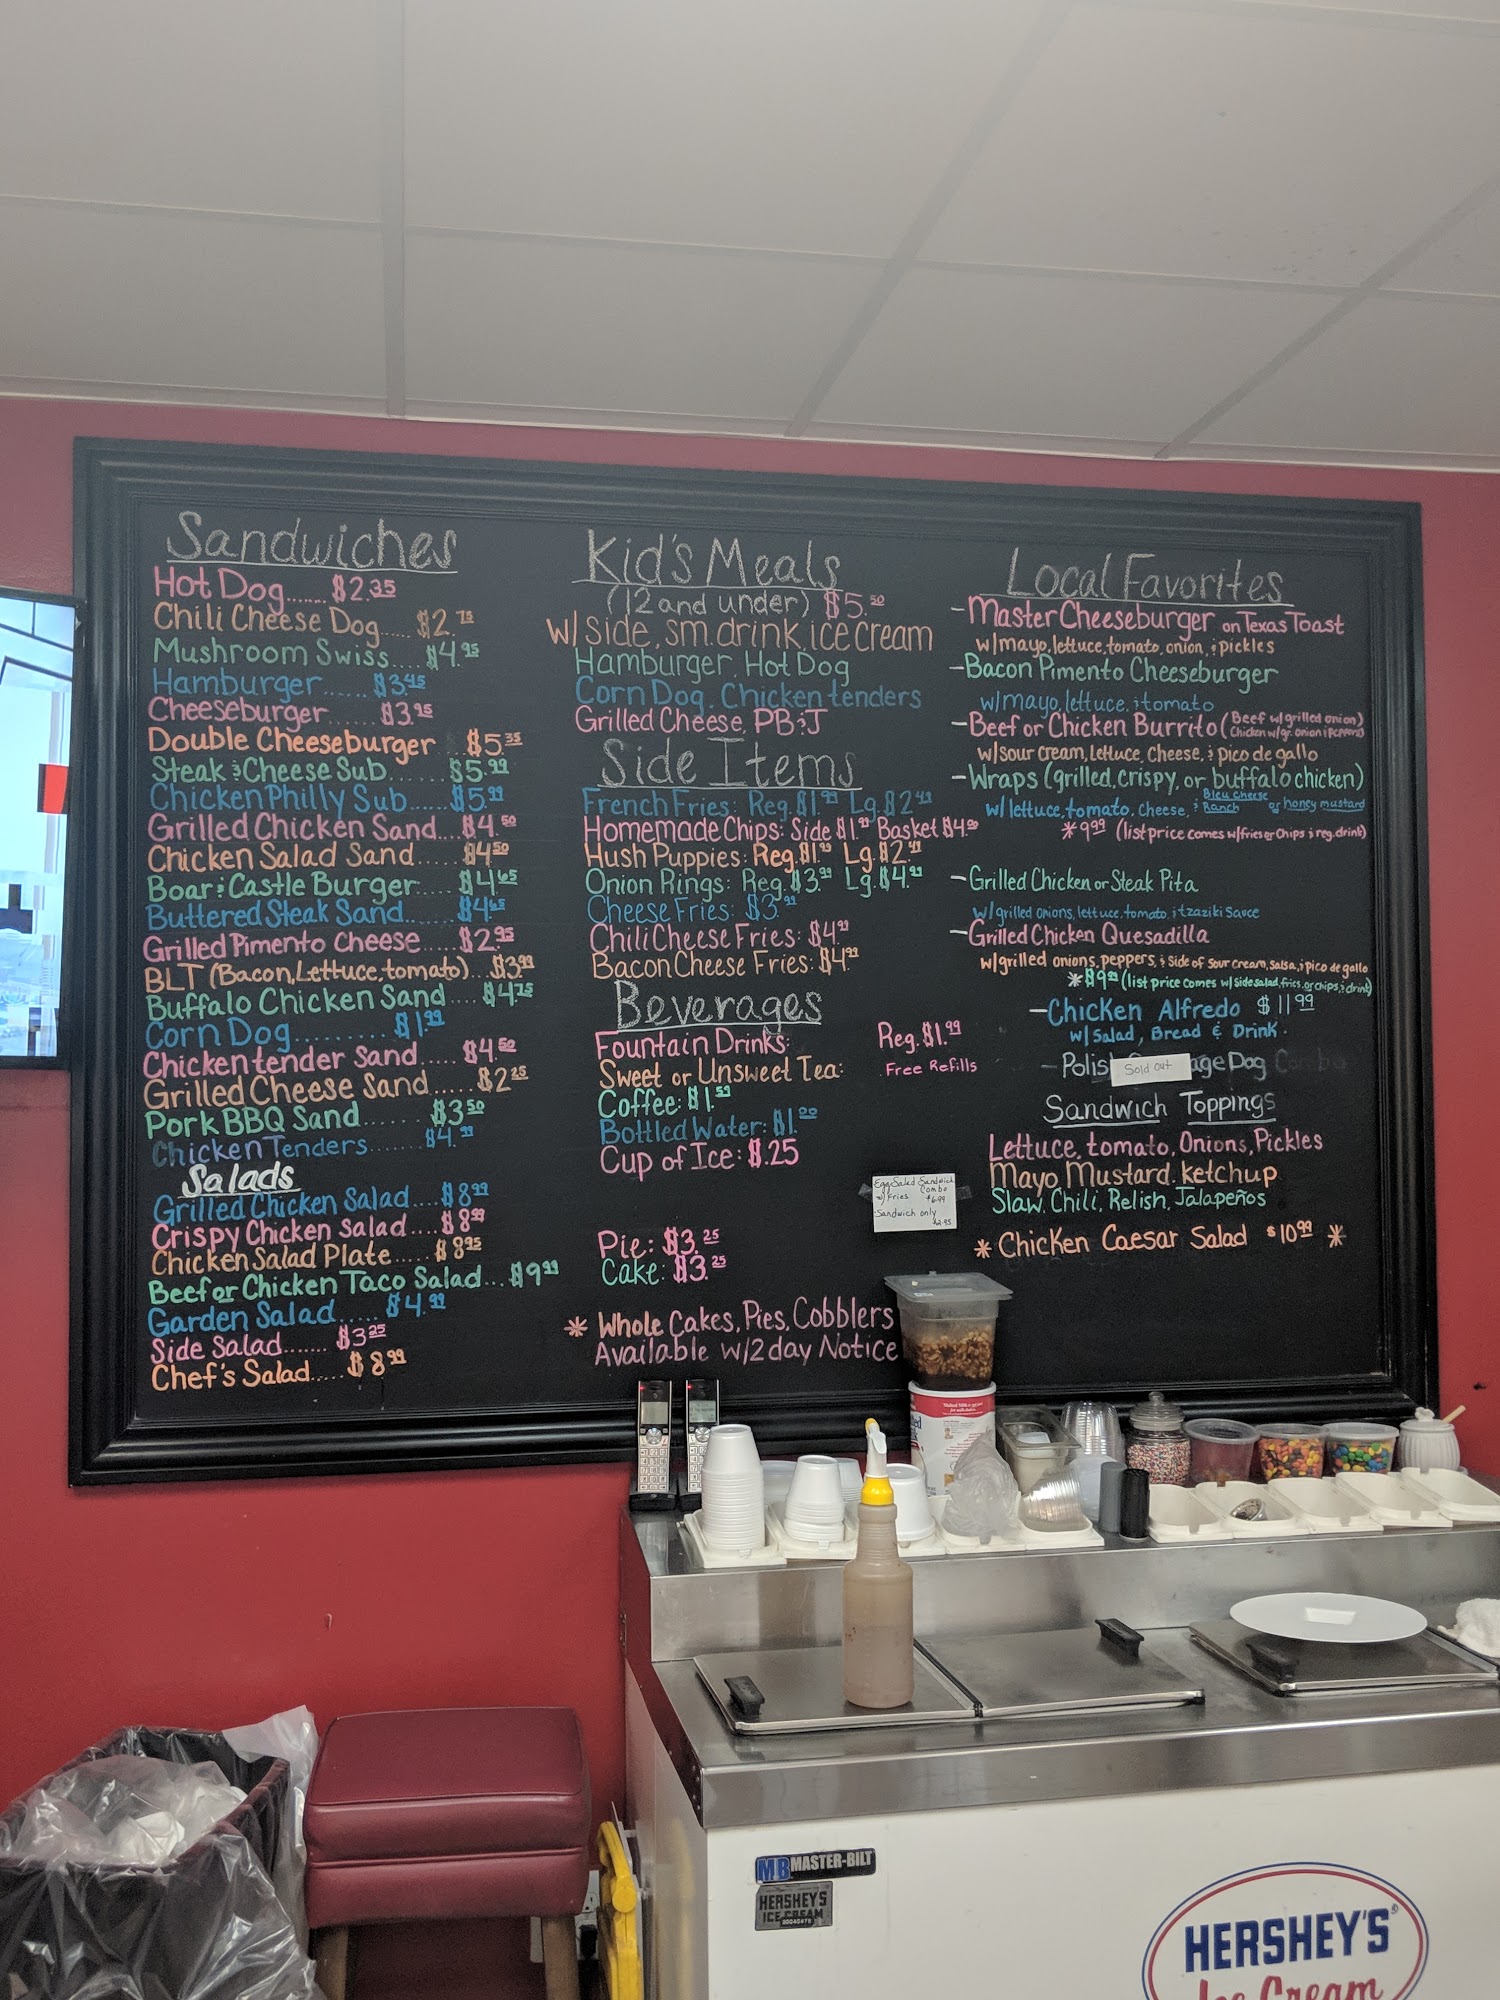 Sandwiches
Hot Dog....... $2.35
Chili Cheese Dog..... $2.75
Mushroom Swiss.... $4.95
Hamburger...... $3.45
Cheeseburger...... $3.95
Double Cheeseburger ...$5.35
Steak & Cheese Sub...... $5.99
Chicken Philly Sub..... $5.99
Grilled Chicken Sand.... $4.50
Chicken Salad Sand..... $4.50
Boar & Castle Burger.... $4.65
Buttered Steak Sand..... $4.65
Grilled Pimento Cheese.... $2.95
BLT (Bacon, Lettuce, tomato)...$3.99
Buffalo Chicken Sand.... $4.75
Corn Dog.......... $1.99
Chicken tender Sand..... $4.50
Grilled Cheese Sand.... $2.25
Pork BBQ Sand....... $3.50
Chicken Tenders....... $4.99
Salads
Grilled Chicken Salad.... $8.99
Crispy Chicken Salad.... $8.99
Chicken Salad Plate..... $8.95
Beef or Chicken Taco Salad... $9.99
Garden Salad..... $4.99
Side Salad....... $3.25
Chef's Salad..... $8.99
Kid's Meals
(12 and under) $5.50
w/ side, sm. drink, ice cream
Hamburger, Hot Dog
Corn Dog, Chicken tenders
Grilled Cheese, PB&J
Side Items
French Fries: Reg. $1.99 Lg. $2.49
Homemade Chips: Side $1.99 Basket $4.99
Hush Puppies: Reg. $1.99 Lg. $2.49
Onion Rings: Reg. $3.99 Lg. $4.99
Cheese Fries: $3.99
Chili Cheese Fries: $4.99
Bacon Cheese Fries: $4.99
Beverages
Fountain Drinks: Reg. $1.99
Sweet or Unsweet Tea: Free Refills
Coffee: $1.59
Bottled Water: $1.00
Cup of Ice: $.25
Egg Salad Sandwich
Combo
w/ Fries $6.99
Sandwich only
$2.95
Pie: $3.25
Cake: $3.25
* Whole Cakes, Pies, Cobblers
Available w/ 2 day Notice
Local Favorites
- Master Cheeseburger on Texas Toast
w/ mayo, lettuce, tomato, onion, & pickles
- Bacon Pimento Cheeseburger
w/ mayo, lettuce, & tomato
- Beef or Chicken Burrito (Beef w/ grilled onion)
Chicken w/ gr. onion & peppers)
w/ Sour cream, Lettuce, Cheese, & pico de gallo
- Wraps (grilled, crispy, or buffalo chicken)
w/ lettuce, tomato, cheese, & Bleu Cheese
Ranch or honey mustard
* 9.99 (list price comes w/ fries or Chips & reg. drink)
- Grilled Chicken or Steak Pita
w/ grilled onions, lettuce, tomato, & tzaziki sauce
- Grilled Chicken Quesadilla
w/ grilled onions, peppers, & side of sour cream, salsa, & pico de gallo
* $9.99 (list price comes w/ side salad, fries, or chips, & drink)
- Chicken Alfredo $11.99
w/ Salad, Bread & Drink.
- Polis Sold out age Dog Combo
Sandwich Toppings
Lettuce, tomato, Onions, Pickles
Mayo Mustard, ketchup
Slaw, Chili, Relish, Jalapeños
* Chicken Caesar Salad $10.99 *
MB MASTER-BILT
HERSHEY'S
ICE CREAM
HERSHEY'S
Ice Cream